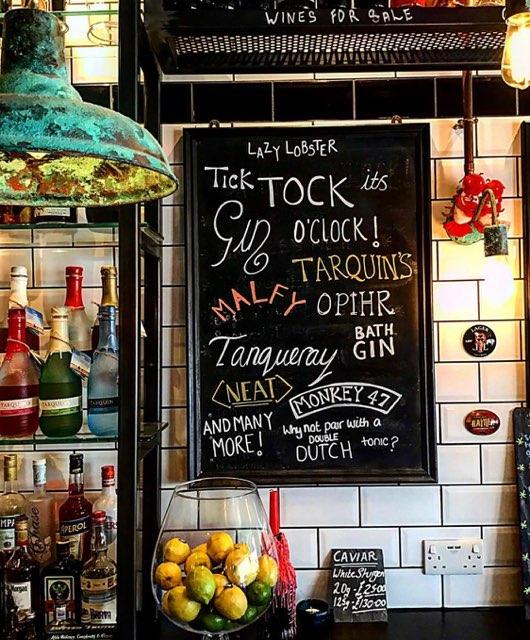 WINES FOR SALE
LAZY LOBSTER
Tick TOCK its
Gin O'CLOCK!
TARQUIN'S
MALFY OPIHR
BATH
Tanqueray GIN
NEAT
MONKEY 47
AND MANY
MORE!
Why not pair with a
DOUBLE
DUTCH tonic?
CAVIAR
White Sturgen
20g £25.00
125g £130.00
LAGER
APEROL
TARQUIN